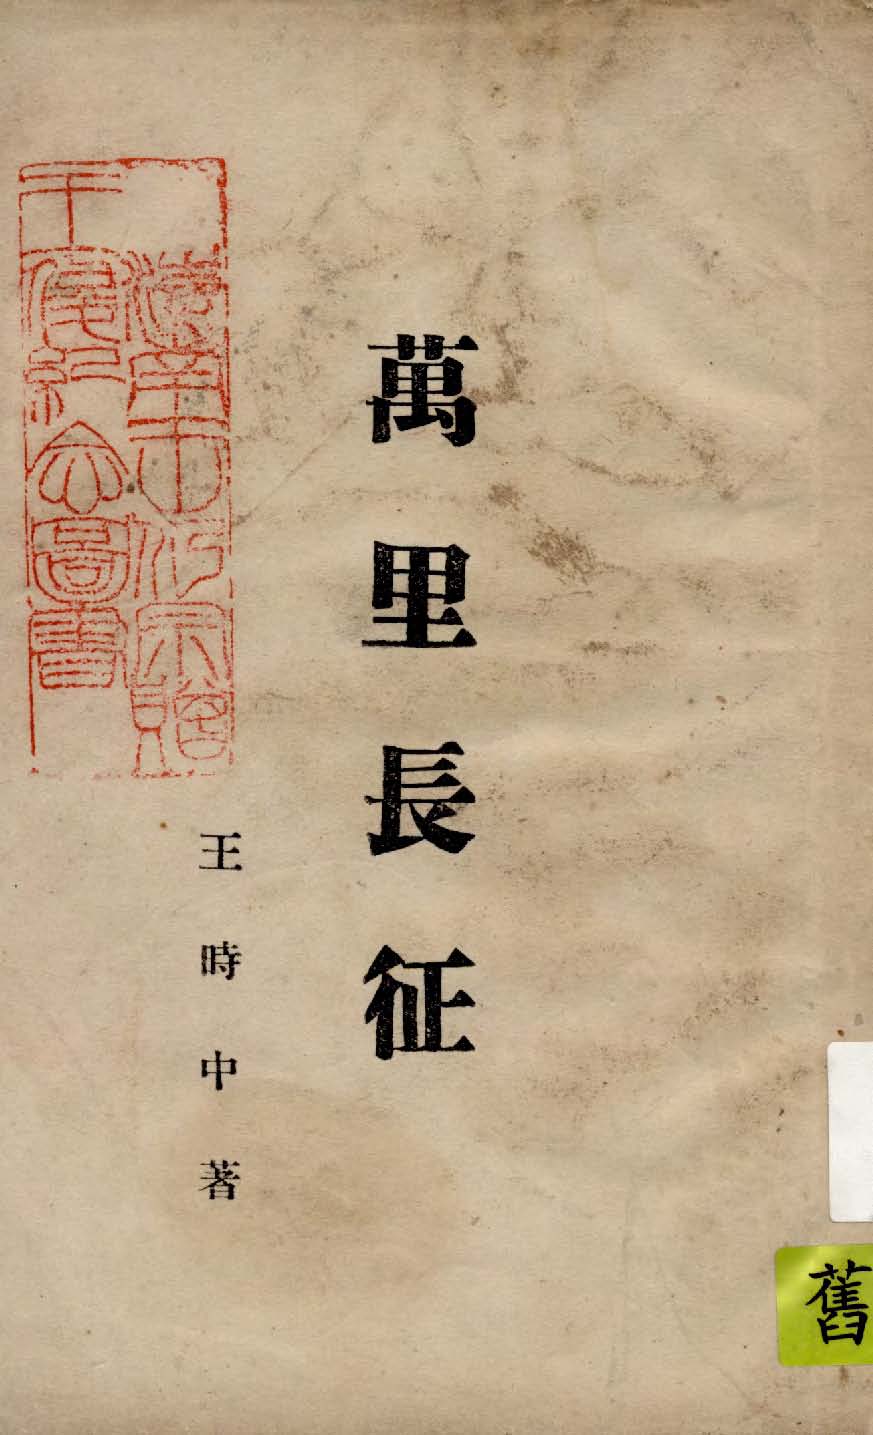 萬里長征
王時中著
舊